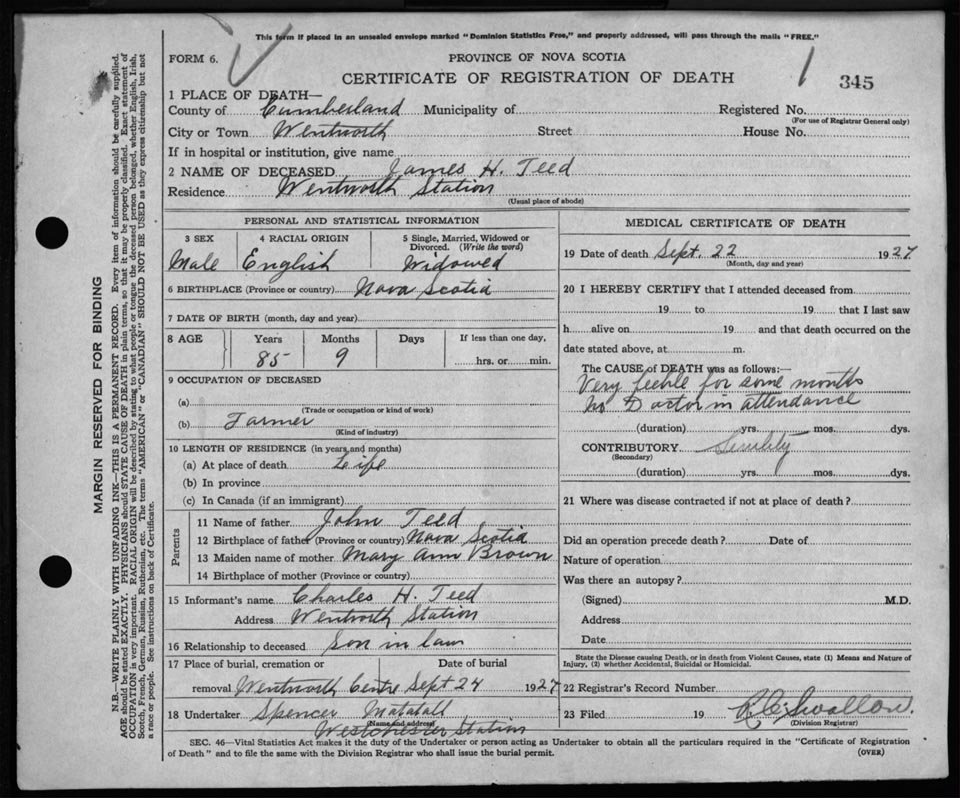 This form if placed in an unsealed envelope marked "Dominion Statistics Free," and properly addressed, will pass through the mails "FREE."
FORM 6.
PROVINCE OF NOVA SCOTIA
CERTIFICATE OF REGISTRATION OF DEATH
1
345
1 PLACE OF DEATH—
County of Cumberland Municipality of Registered No.
(For use of Registrar General only)
City or Town Wentworth Street House No.
If in hospital or institution, give name
2 NAME OF DECEASED James H. Teed
Residence Wentworth Station
(Usual place of abode)
PERSONAL AND STATISTICAL INFORMATION
3 SEX 4 RACIAL ORIGIN 5 Single, Married, Widowed or Divorced. (Write the word)
Male English Widowed
6 BIRTHPLACE (Province or country) Nova Scotia
7 DATE OF BIRTH (month, day and year)
8 AGE Years Months Days If less than one day,
85 9 hrs. or min.
9 OCCUPATION OF DECEASED
(a)
(Trade or occupation or kind of work)
(b) Farmer
(Kind of industry)
10 LENGTH OF RESIDENCE (in years and months)
(a) At place of death Life
(b) In province
(c) In Canada (if an immigrant)
Parents
11 Name of father John Teed
12 Birthplace of father (Province or country) Nova Scotia
13 Maiden name of mother Mary Ann Brown
14 Birthplace of mother (Province or country)
15 Informant's name Charles H. Teed
Address Wentworth Station
16 Relationship to deceased Son in law
17 Place of burial, cremation or Date of burial
removal Wentworth Centre Sept 24 1927
18 Undertaker Spencer Matatall
(Name and address)
Westchester Station
MEDICAL CERTIFICATE OF DEATH
19 Date of death Sept. 22 1927
(Month, day and year)
20 I HEREBY CERTIFY that I attended deceased from
19 to 19 that I last saw
h alive on 19 and that death occurred on the
date stated above, at m.
The CAUSE of DEATH was as follows:—
Very feeble for some months
No Doctor in attendance
(duration) yrs. mos. dys.
CONTRIBUTORY Senility
(Secondary)
(duration) yrs. mos. dys.
21 Where was disease contracted if not at place of death?
Did an operation precede death? Date of
Nature of operation
Was there an autopsy?
(Signed) M.D.
Address
Date
State the Disease causing Death, or in death from Violent Causes, state (1) Means and Nature of
Injury, (2) whether Accidental, Suicidal or Homicidal.
22 Registrar's Record Number
23 Filed 19 Swallow.
(Division Registrar)
SEC. 46—Vital Statistics Act makes it the duty of the Undertaker or person acting as Undertaker to obtain all the particulars required in the "Certificate of Registration
of Death" and to file the same with the Division Registrar who shall issue the burial permit. (OVER)
MARGIN RESERVED FOR BINDING
N.B.—WRITE PLAINLY WITH UNFADING INK—THIS IS A PERMANENT RECORD. Every item of information should be carefully supplied.
AGE should be stated EXACTLY. PHYSICIANS should STATE CAUSE OF DEATH in plain terms, so that it may be properly classified. Exact statement of
OCCUPATION is very important. RACIAL ORIGIN will be described by stating to what people or tongue the deceased person belonged, whether English, Irish,
Scotch, French, German, Russian, Ruthenian, etc. The terms "AMERICAN" or "CANADIAN" SHOULD NOT BE USED as they express citizenship but not
a race or people. See instructions on back of Certificate.